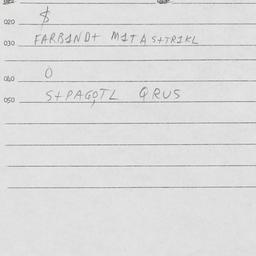 020 $
030 FARB1ND+ M1TAS+TR1KL
040 0
050 S+PAGOTL QRUS